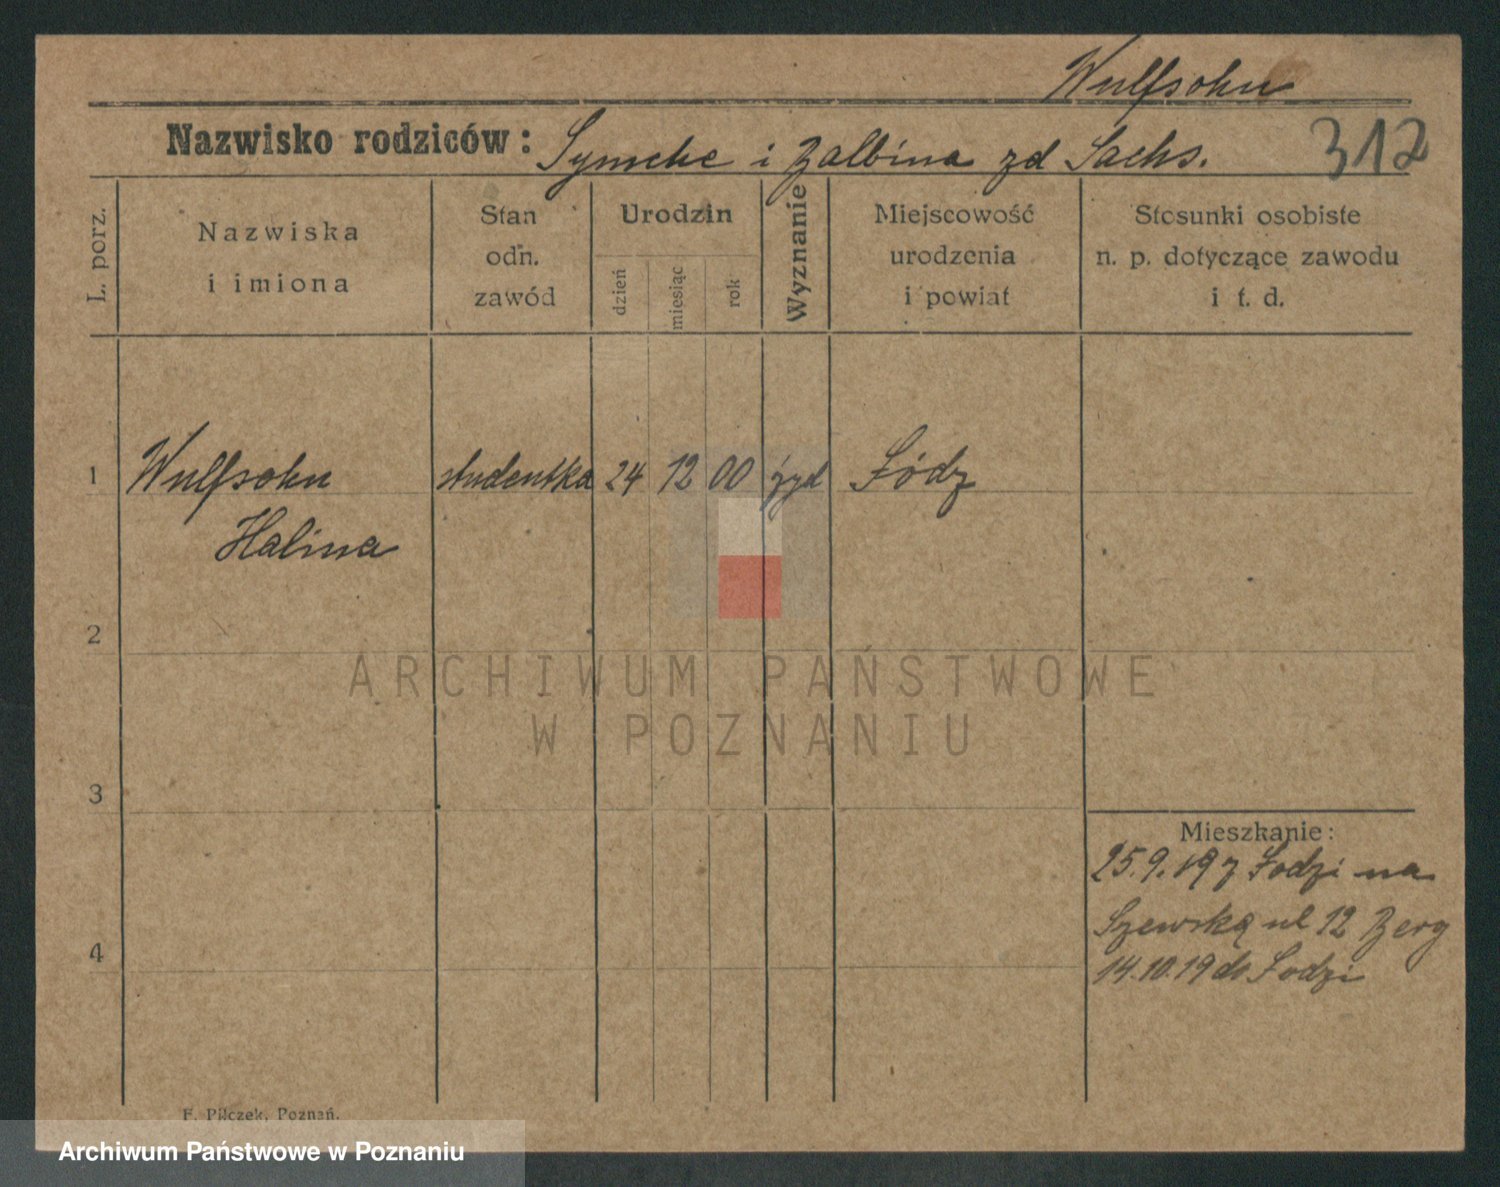 Wulfsohn
Nazwisko rodziców: Symche i Balbina zd Sachs.
312
L. porz.
Nazwiska
i imiona
Stan
odn.
zawód
Urodzin
dzień
miesiąc
rok
Wyznanie
Miejscowość
urodzenia
i powiat
Stosunki osobiste
n. p. dotyczące zawodu
i t. d.
1 Wulfsohn studentka 24 12 00 żyd Łódz
Halina
2
ARCHIWUM PAŃSTWOWE
W POZNANIU
3
Mieszkanie:
25.9.19 z Łodzi na
Szewską ul 12 Berg
4
14.10.19 do Łodzi
F. Pilczek, Poznań.
Archiwum Państwowe w Poznaniu